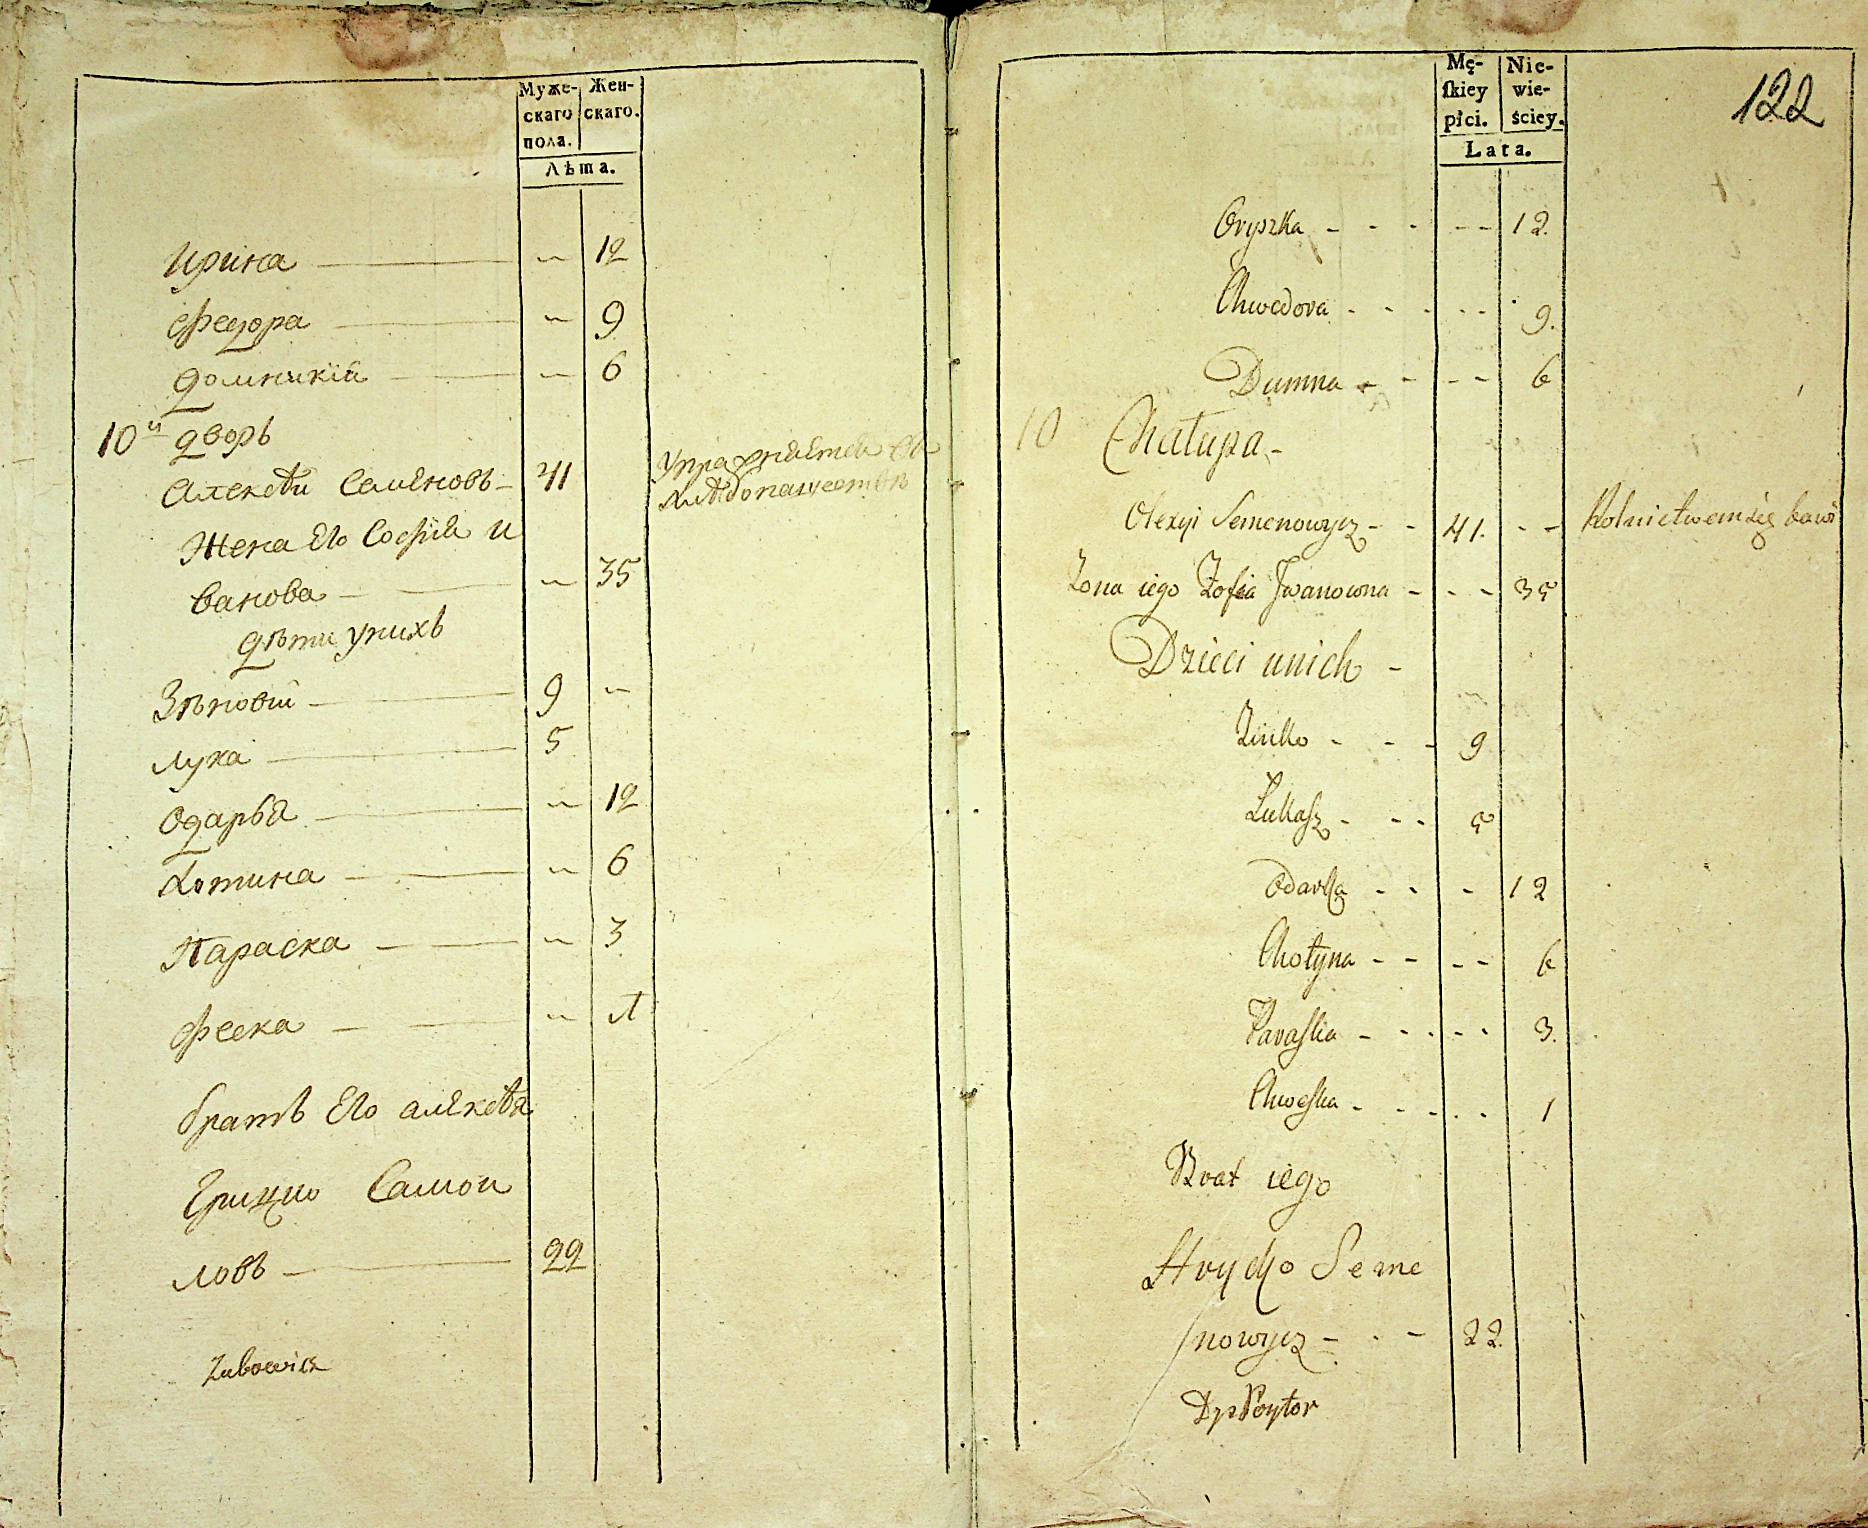 Муже-
скаго
пола.
Жен-
скаго.
Лѣта.
Ирина — 12
Федора — 9
Домникiя — 6
10й дворъ
Алексѣй Семеновъ 41
Упражняется въ
хлѣбопашествѣ
Жена Его Софiя И
ванова — 35
дѣти у нихъ
Зѣновiй — 9
Лука — 5
Одарья — 12
Хотина — 6
Параска — 3
Феска — 1
братъ Его алексѣя
Грицко Самои
ловъ — 22
Zubowicz
Mę-
skiey
płci.
Nie-
wie-
ściey.
Lata.
122
Oryszka - - - - - 12.
Chwedora - - - - - 9.
Dumna - - - - 6
10 Chałupa -
Olexyi Semenowycz - - 41. - - Rolnictwem się bawi
Zona iego Zofia Jwanowna - - - 35
Dzieci unich -
Zinko - - - 9
Lukasz - - - 5
Odarka - - - 12
Chotyna - - - - 6
Paraska - - - - - 3.
Chweska - - - - - 1
Brat iego
Hrycko Seme
nowycz - - - 22.